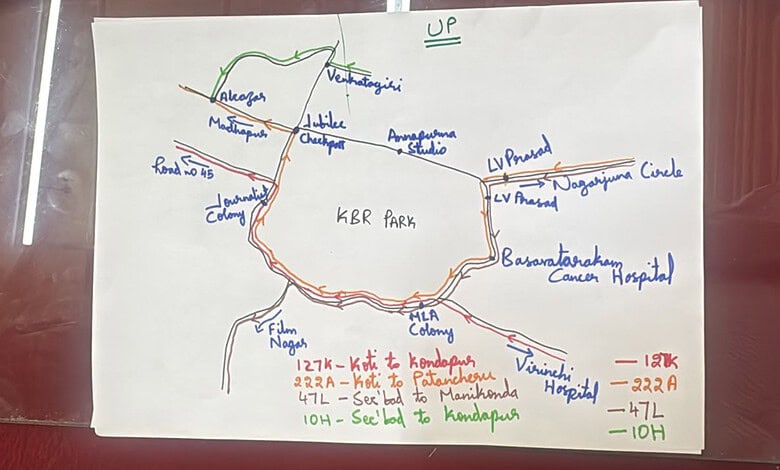 UP
Venkatagiri
Alcazar
Madhapur
Jubilee
Checkpost
Annapurna
Studio
LV Prasad
Nagarjuna Circle
LV Prasad
Road no 45
Journalist
Colony
KBR PARK
Basavatarakam
Cancer Hospital
MLA
Colony
Film
Nagar
Virinchi
Hospital
127K - Koti to Kondapur
222A - Koti to Patancheru
47L - Sec'bad to Manikonda
10H - Sec'bad to Kondapur
- 127K
- 222A
- 47L
- 10H